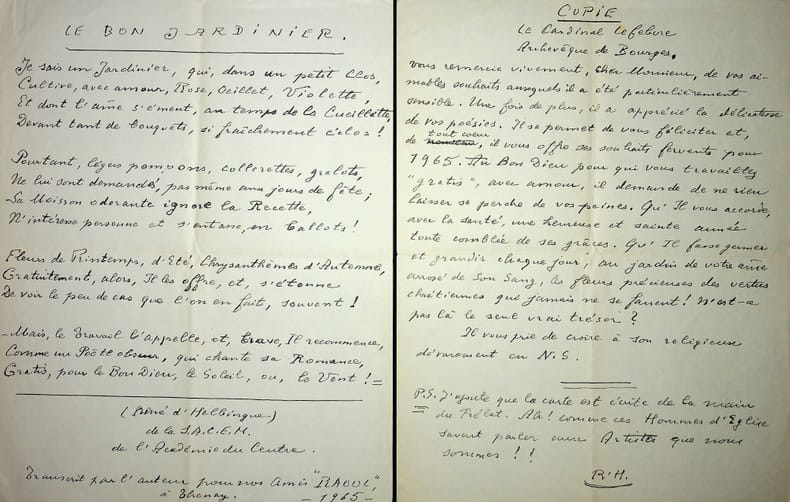 LE BON JARDINIER.
Je sais un Jardinier, qui, dans un petit Clos,
Cultive, avec amour, Rose, Oeillet, Violette,
Et dont l'âme s'émeut, au temps de la Cueillette,
Devant tant de bouquets, si fraîchement éclos !
Pourtant, légers pompons, collerettes, grelots,
Ne lui sont demandés, pas même aux jours de fête ;
Sa Moisson odorante ignore la Recette,
N'intéresse personne et s'entasse, en Ballots !
Fleurs de Printemps, d'Eté, Chrysanthèmes d'Automne,
Gratuitement, alors, Il les offre, et, s'étonne
De voir le peu de cas que l'on en fait, souvent !
- Mais, le Travail l'appelle, et, brave, Il recommence,
Comme un Poëte obscur, qui chante sa Romance,
Gratis, pour le Bon Dieu, le Soleil, ou, le Vent ! =
d'Helbingue)
de la S.A.C.E.M.
de l'Académie du Centre.
Transcrit par l'auteur pour nos Amis "RAOUL",
à Thenay. - 1965 -
COPIE
Le Cardinal Lefebvre
Archevêque de Bourges,
vous remercie vivement, Cher Monsieur, de vos ai-
mables souhaits auxquels il a été particulièrement
sensible. Une fois de plus, il a apprécié la délicatesse
de vos poésies. Il se permet de vous féliciter et,
tout coeur
de, il vous offre ses souhaits fervents pour
1965. Au Bon Dieu pour qui vous travaillez
"gratis", avec amour, il demande de ne rien
laisser se perdre de vos peines. Qu'Il vous accorde,
avec la santé, une heureuse et sainte année
toute comblée de ses grâces. Qu'Il fasse germer
et grandir chaque jour, au jardin de votre âme
arrosé de Son Sang, les fleurs précieuses des vertus
chrétiennes qui jamais ne se fanent ! N'est-ce
pas là le seul vrai trésor ?
Il vous prie de croire à son religieux
dévouement en N.S.
P.S. J'ajoute que la carte est écrite de la main
du Prélat. Ah ! comme ces Hommes d'Eglise
savent parler aux Artistes que nous
sommes ! !
R'H.